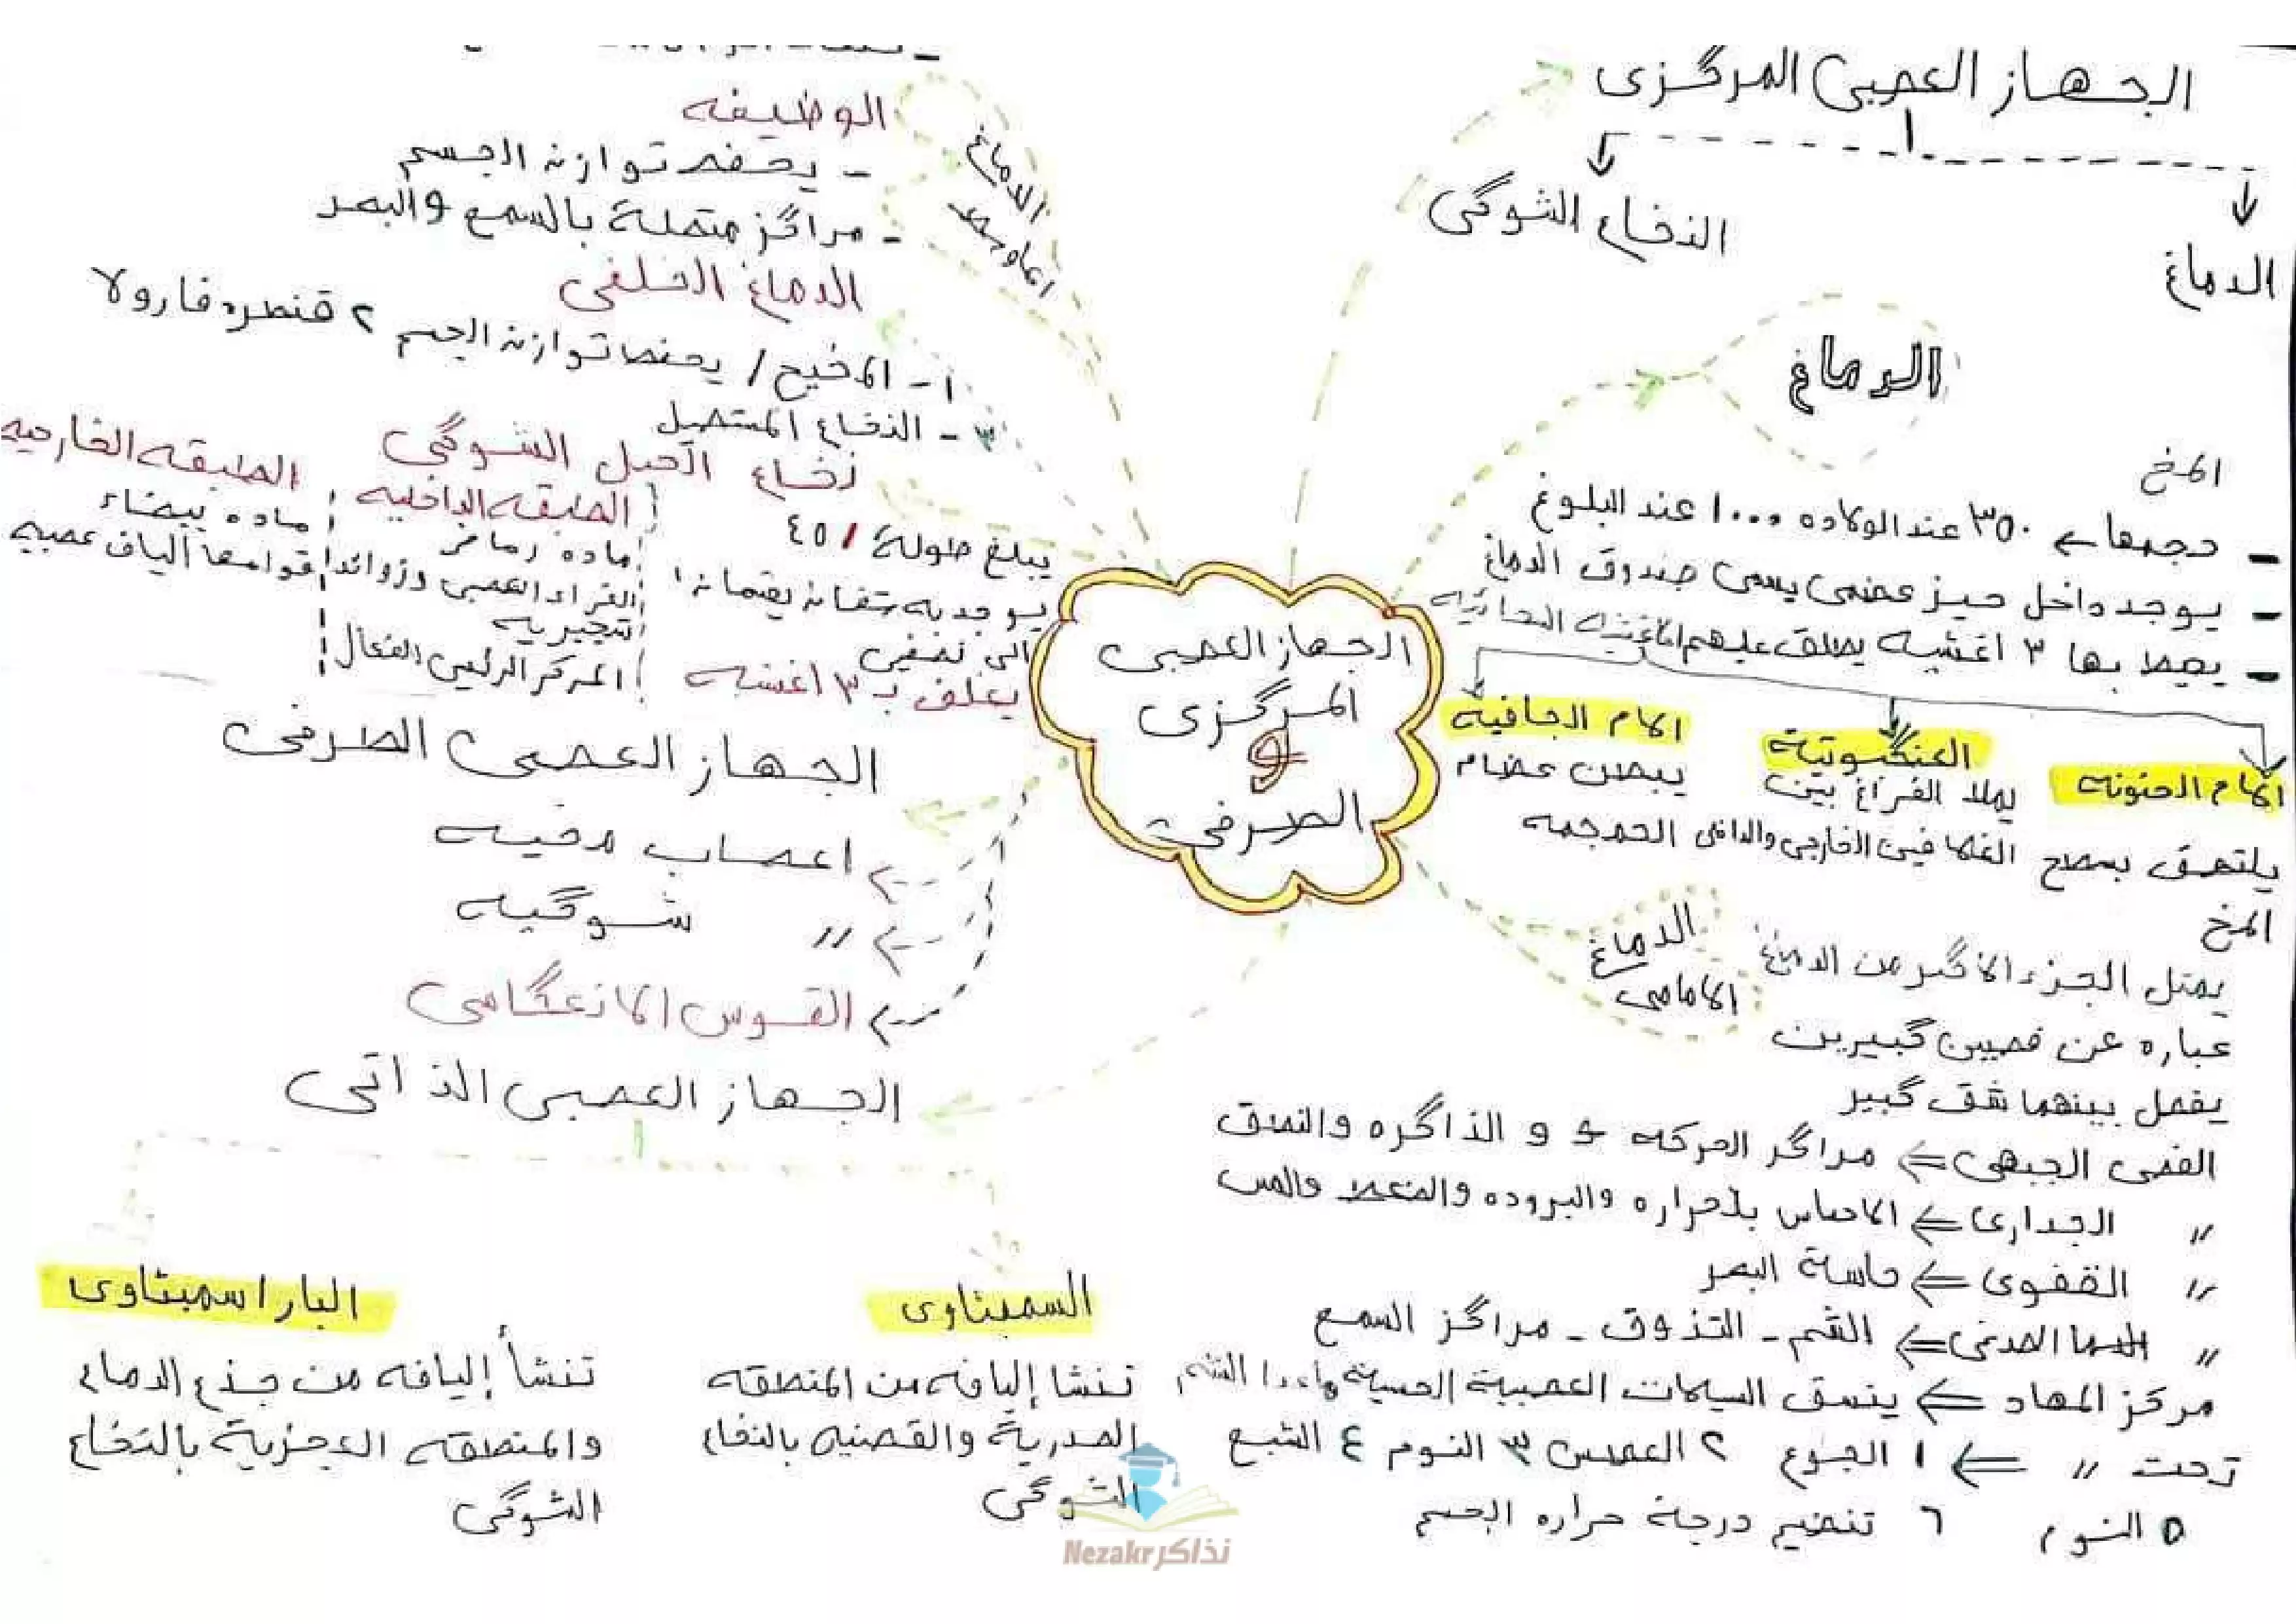 الجهاز العصبى المركزى
النخاع الشوكى
الدماغ
الدماغ
المخ
- حجمها ← ٣٥٠ عند الولاده ١٠٠٠ عند البلوغ
- يوجد داخل حيز عضمى يسمى صندوق الدماغ
- يحيط بها ٣ اغشيه يطلق عليهم الاغشيه السحائيه
الام الحنونه
يلتصق بسطح
المخ
العنكبوتية
يملا الفراغ بين
الغلافين الخارجى والداخلى
الام الجافية
يبطن عضام
الجمجمه
الدماغ
الامامى
يمثل الجزء الاكبر من الدماغ
عباره عن فصين كبيرين
يفصل بينهما شق كبير
الفص الجبهى ⇐ مراكز الحركه و الذاكره والنطق
〃 الجدارى ⇐ الاحساس بالحراره والبروده والضغط والمس
〃 القفوى ⇐ حاسة البصر
〃 الصدغى ⇐ الشم - التذوق - مراكز السمع
مركز المهاد ⇐ ينسق السيالات العصبية الحسية ماعدا الشم
تحت 〃 ⇐ ١ الجوع ٢ العطس ٣ النوم ٤ الشبع
٥ النوم ٦ تنضيم درجة حراره الجسم
الجهاز العصبى
المركزى
و
الطرفى
الدماغ
الاوسط
الوظيفه
- يحفض توازن الجسم
- مراكز متصلة بالسمع والبصر
الدماغ الخلفى
١- المخيخ / يحفض توازن الجسم ٢ قنطره فارولا
٣- النخاع المستطيل
نخاع الحبل الشوكى
يبلغ طولة / ٤٥
يوجد به شقان يقسمانه
الى نصفين
يغلف بـ ٣ اغشيه
الطبقه الداخليه
ماده رماديه
شجيريه
المركز الرئيسى الفعال
الطبقه الخارجيه
ماده بيضاء
قوامها الياف عصبيه
الجهاز العصبى الطرفى
اعصاب مخيه
〃 شوكيه
القوس الانعكاسى
الجهاز العصبى الذاتى
السمبثاوى
تنشا إليافه من المنطقه
الصدرية والقطنيه بالنخاع
الشوكى
البارا سمبثاوى
تنشأ إليافه من جذع الدماغ
والمنطقه العجزية بالنخاع
الشوكى
نذاكر Nezakr